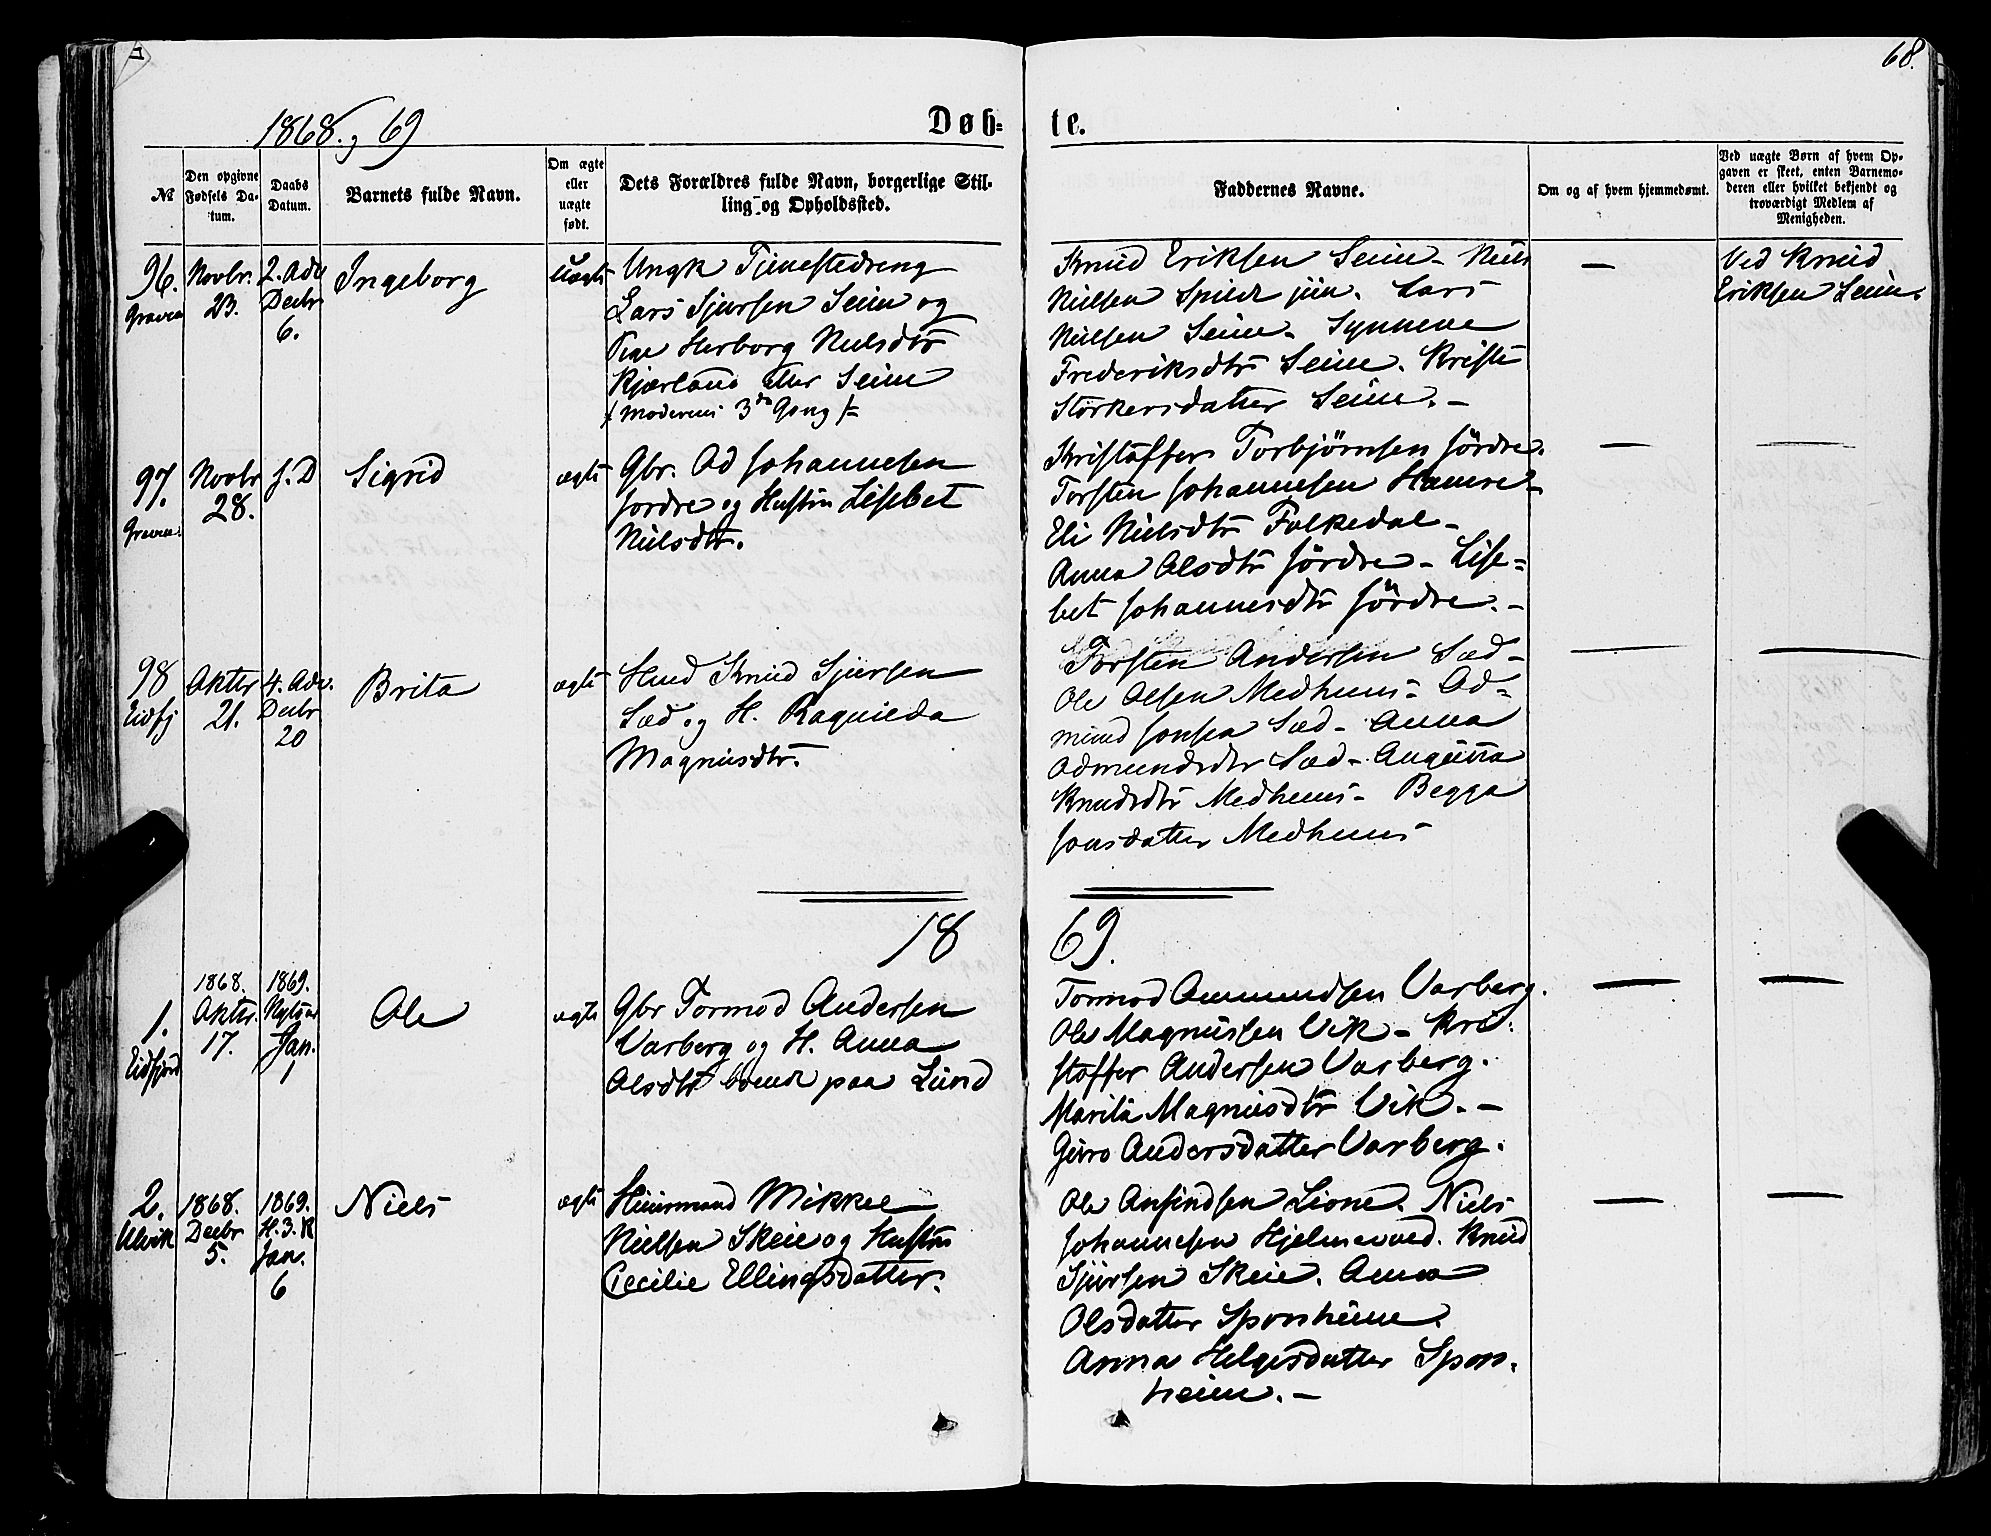 68.
1868, 69
Døb=
te.
№
Den opgivne Fødsels Da-
tum.
Daabs
Datum.
Barnets fulde Navn.
Om ægte
eller
uægte
født.
Dets Forældres fulde Navn, borgerlige Stil-
ling og Opholdssted.
Faddernes Navne.
Om og af hvem hjemmedøbt.
Ved uægte Børn af hvem Op-
gaven er skeet, enten Barnemo-
deren eller hvilket bekjendt og
troværdigt Medlem af
Menigheden.
96.
Graven
Novbr.
23.
2. Adv
Decbr
6.
Ingeborg
uægte
Ungk Tjenestedreng
Lars Sjursen Seim og
Pige Herborg Nielsdtr
Kjærland eller Seim
(Moderens 3die Gang)
Knud Eriksen Seim - Niels
Nielsen Spilde jun. Lars
Nielsen Seim - Synneve
Frederiksdtr Seim. Kristi
Størkersdatter Seim. -
—
Ved Knud
Eriksen Seim.
97.
Graven
Novbr
28.
s. D
Sigrid
ægte
Gbr. Od Johannesen
Jordre og Hustru Lisebet
Nielsdtr.
Kristaffer Torbjørnsen Jördre.
Torsten Johannesen Hamre -
Eli Nielsdtr Folkedal -
Anna Olsdtr Jördre - Lise=
bet Johannesdtr Jördre. -
—
—
98
Eidfj
Oktbr
21.
4. Adv.
Decbr
20
Brita
ægte
Hmd Knud Sjursen
Sæd og H. Ragnilda
Magnusdtr.
Torsten Andersen Sæd -
Ole Olsen Medhuus - Od=
mund Jonsen Sæd - Anna
Odmundsdtr Sæd - Angunna
Knudsdtr Medhuus - Begga
Jonsdatter Medhuus
—
—
18
69.
1.
Eidfjord
1868.
Oktbr.
17.
1869.
Nytsar
Jan.
1
Ole
ægte
Gbr Tormod Andersen
Varberg og H. Anna
Olsdtr boende paa Lund
Tormod Ammundsen Varberg.
Ole Magnussen Vik - Kri-
stoffer Andersen Varberg.
Marita Magnusdtr Vik. -
Guro Andersdatter Varberg.
—
—
2.
Ulvik
1868.
Decbr
5.
1869.
H. 3. K
Jan.
6
Niels
ægte
Huusmand Mikkel
Nielsen Skeie og Hustru
Cecilie Ellingsdatter.
Ole Anfindsen Lione. Niels
Johannesen Hjelmevold. Knud
Sjursen Skeie. Anna
Olsdatter Sponheim.
Anna Helgesdatter Spon-
heim. -
—
—